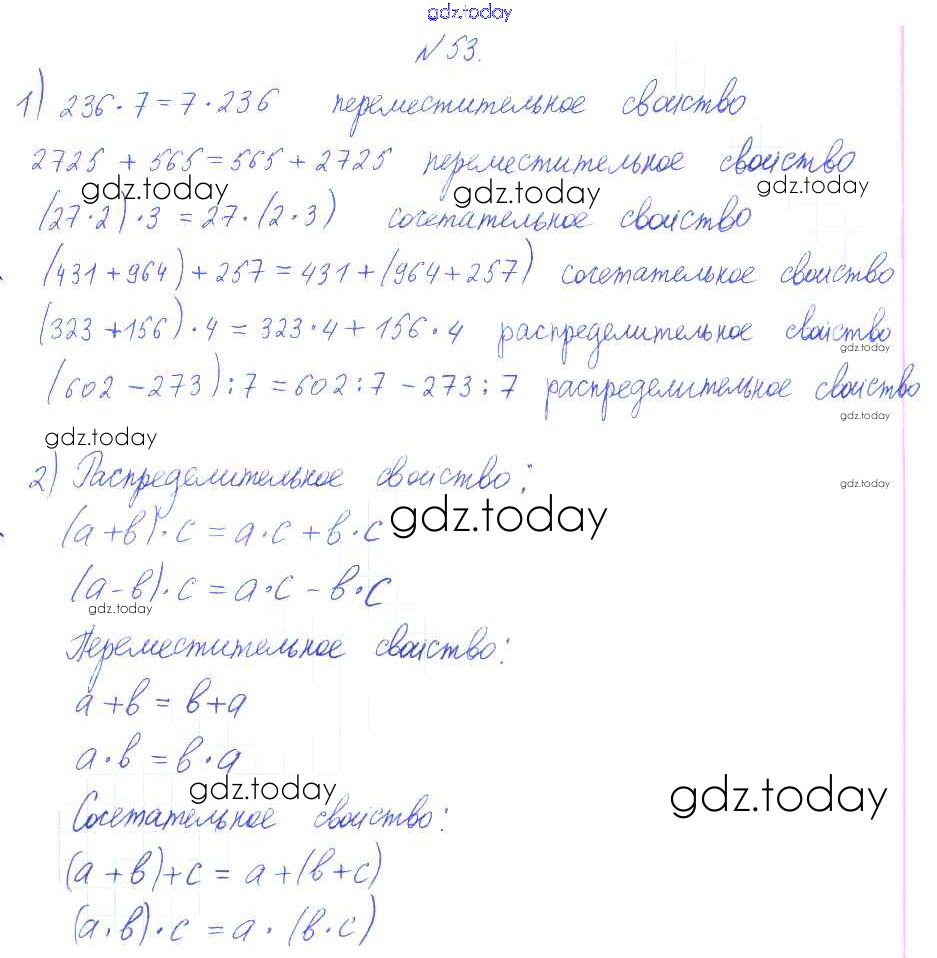 gdz.today
№ 53.
1) 236 · 7 = 7 · 236 переместительное свойство
2725 + 565 = 565 + 2725 переместительное свойство
gdz.today gdz.today gdz.today
(27 · 2) · 3 = 27 · (2 · 3) сочетательное свойство
(431 + 964) + 257 = 431 + (964 + 257) сочетательное свойство
(323 + 156) · 4 = 323 · 4 + 156 · 4 распределительное свойство
gdz.today
(602 − 273) : 7 = 602 : 7 − 273 : 7 распределительное свойство
gdz.today
gdz.today
2) Распределительное свойство:
gdz.today
(a + b) · c = a · c + b · c
gdz.today
(a − b) · c = a · c − b · c
gdz.today
Переместительное свойство:
a + b = b + a
a · b = b · a
gdz.today gdz.today
Сочетательное свойство:
(a + b) + c = a + (b + c)
(a · b) · c = a · (b · c)